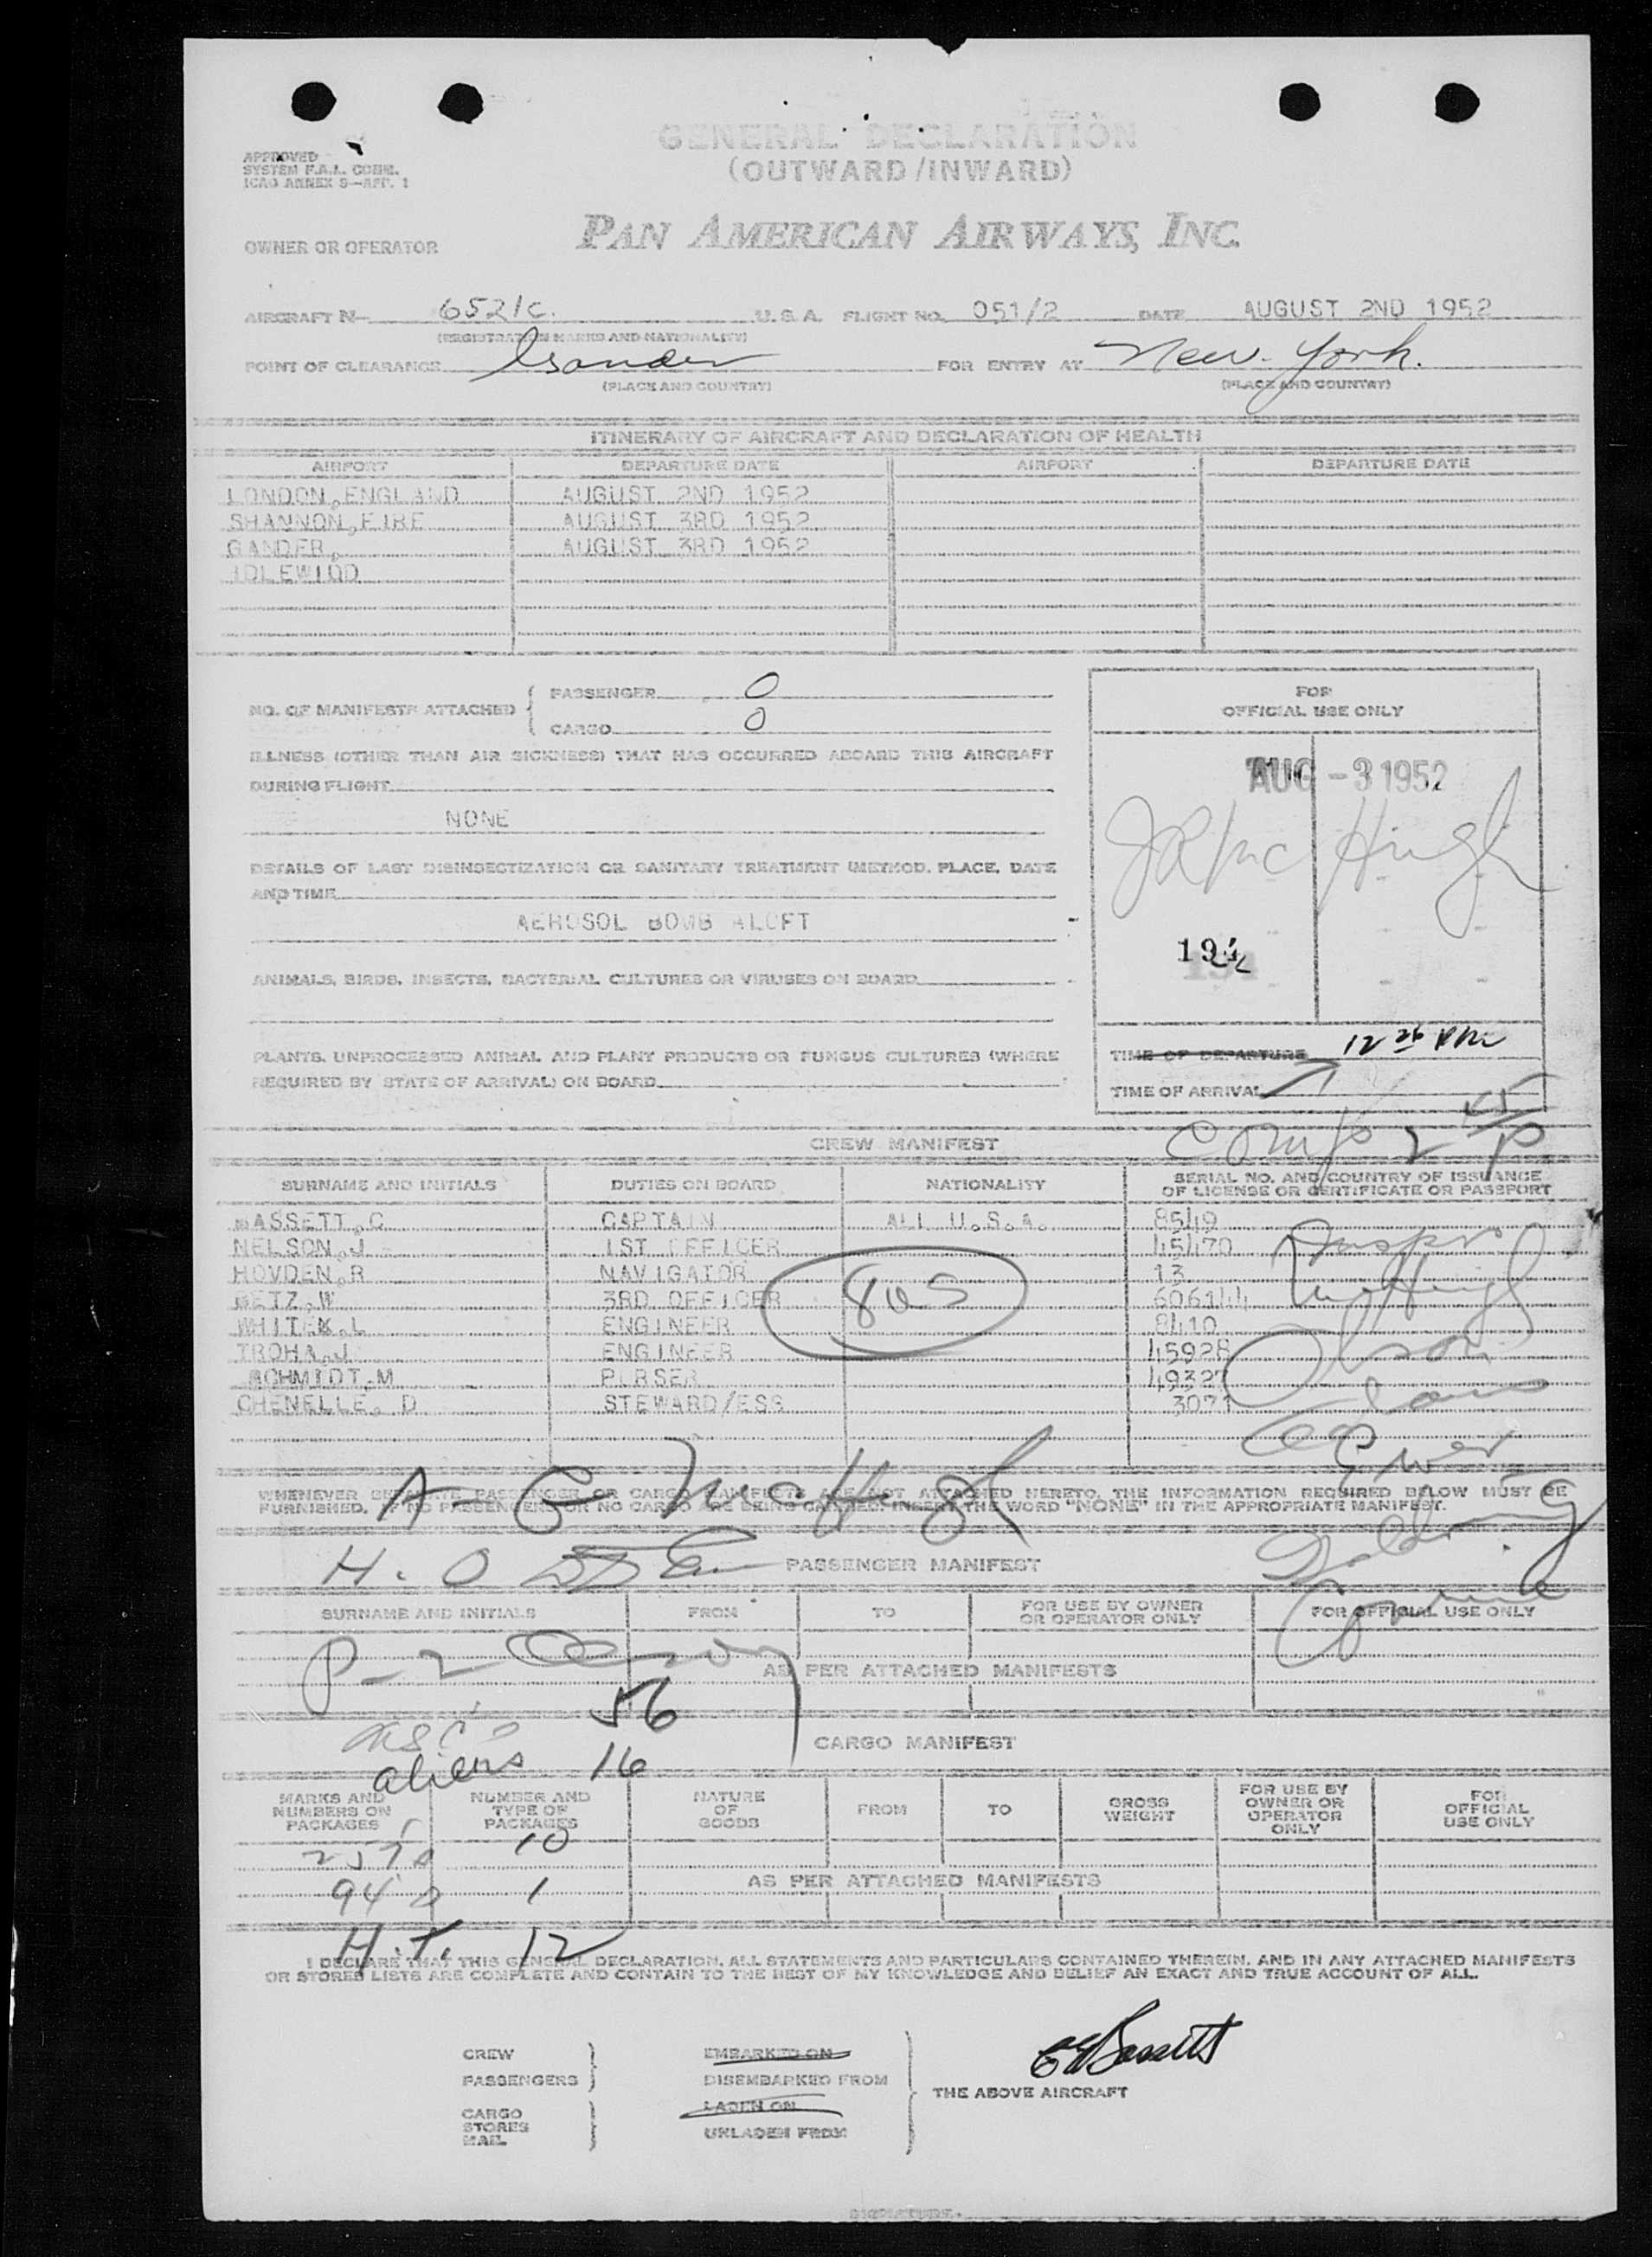 GENERAL DECLARATION
(OUTWARD/INWARD)
APPROVED
SYSTEM F.A.L. COMM.
ICAO ANNEX 9—APP. 1
OWNER OR OPERATOR
PAN AMERICAN AIRWAYS, INC.
AIRCRAFT N— 6521C. U. S. A. FLIGHT NO. 051/2 DATE AUGUST 2ND 1952
(REGISTRATION MARKS AND NATIONALITY)
POINT OF CLEARANCE Gander FOR ENTRY AT New York.
(PLACE AND COUNTRY) (PLACE AND COUNTRY)
ITINERARY OF AIRCRAFT AND DECLARATION OF HEALTH
AIRPORT DEPARTURE DATE AIRPORT DEPARTURE DATE
LONDON,ENGLAND AUGUST 2ND 1952
SHANNON,EIRE AUGUST 3RD 1952
GANDER, AUGUST 3RD 1952
IDLEWIDD
NO. OF MANIFESTS ATTACHED
PASSENGER 0
CARGO 0
ILLNESS (OTHER THAN AIR SICKNESS) THAT HAS OCCURRED ABOARD THIS AIRCRAFT
DURING FLIGHT
NONE
DETAILS OF LAST DISINSECTIZATION OR SANITARY TREATMENT (METHOD, PLACE, DATE
AND TIME
AEROSOL BOMB ALOFT
ANIMALS, BIRDS, INSECTS, BACTERIAL CULTURES OR VIRUSES ON BOARD
PLANTS, UNPROCESSED ANIMAL AND PLANT PRODUCTS OR FUNGUS CULTURES (WHERE
REQUIRED BY STATE OF ARRIVAL) ON BOARD
FOR
OFFICIAL USE ONLY
AUG -3 1952
JR McHugh
TIME OF DEPARTURE 12 26 PM
TIME OF ARRIVAL
Comp 2 45/P
CREW MANIFEST
SURNAME AND INITIALS DUTIES ON BOARD NATIONALITY SERIAL NO. AND COUNTRY OF ISSUANCE
OF LICENSE OR CERTIFICATE OR PASSPORT
BASSETT,C CAPTAIN ALL U.S.A. 8549
NELSON,J 1ST OFFICER 45470
HOVDEN,R NAVIGATOR 13
BETZ,W 3RD OFFICER 606144
WHITE,L ENGINEER 8410
TROHA,J ENGINEER 45928
SCHMIDT,M PURSER 49327
CHENELLE, D STEWARD/ESS 3071
McHugh
Olson
WHENEVER SEPARATE PASSENGER OR CARGO MANIFESTS ARE NOT ATTACHED HERETO, THE INFORMATION REQUIRED BELOW MUST BE
FURNISHED. IF NO PASSENGERS OR NO CARGO ARE BEING CARRIED, INSERT THE WORD "NONE" IN THE APPROPRIATE MANIFEST.
A- C McHugh
PASSENGER MANIFEST
SURNAME AND INITIALS FROM TO FOR USE BY OWNER
OR OPERATOR ONLY FOR OFFICIAL USE ONLY
AS PER ATTACHED MANIFESTS
56
aliens 16
CARGO MANIFEST
MARKS AND
NUMBERS ON
PACKAGES
NUMBER AND
TYPE OF
PACKAGES
NATURE
OF
GOODS
FROM
TO
GROSS
WEIGHT
FOR USE BY
OWNER OR
OPERATOR
ONLY
FOR
OFFICIAL
USE ONLY
10
1
AS PER ATTACHED MANIFESTS
H.T. 12
I DECLARE THAT THIS GENERAL DECLARATION, ALL STATEMENTS AND PARTICULARS CONTAINED THEREIN, AND IN ANY ATTACHED MANIFESTS
OR STORES LISTS ARE COMPLETE AND CONTAIN TO THE BEST OF MY KNOWLEDGE AND BELIEF AN EXACT AND TRUE ACCOUNT OF ALL.
CREW
PASSENGERS
EMBARKED ON
DISEMBARKED FROM
CARGO
STORES
MAIL
LADEN ON
UNLADEN FROM
THE ABOVE AIRCRAFT
Bassett
SIGNATURE.